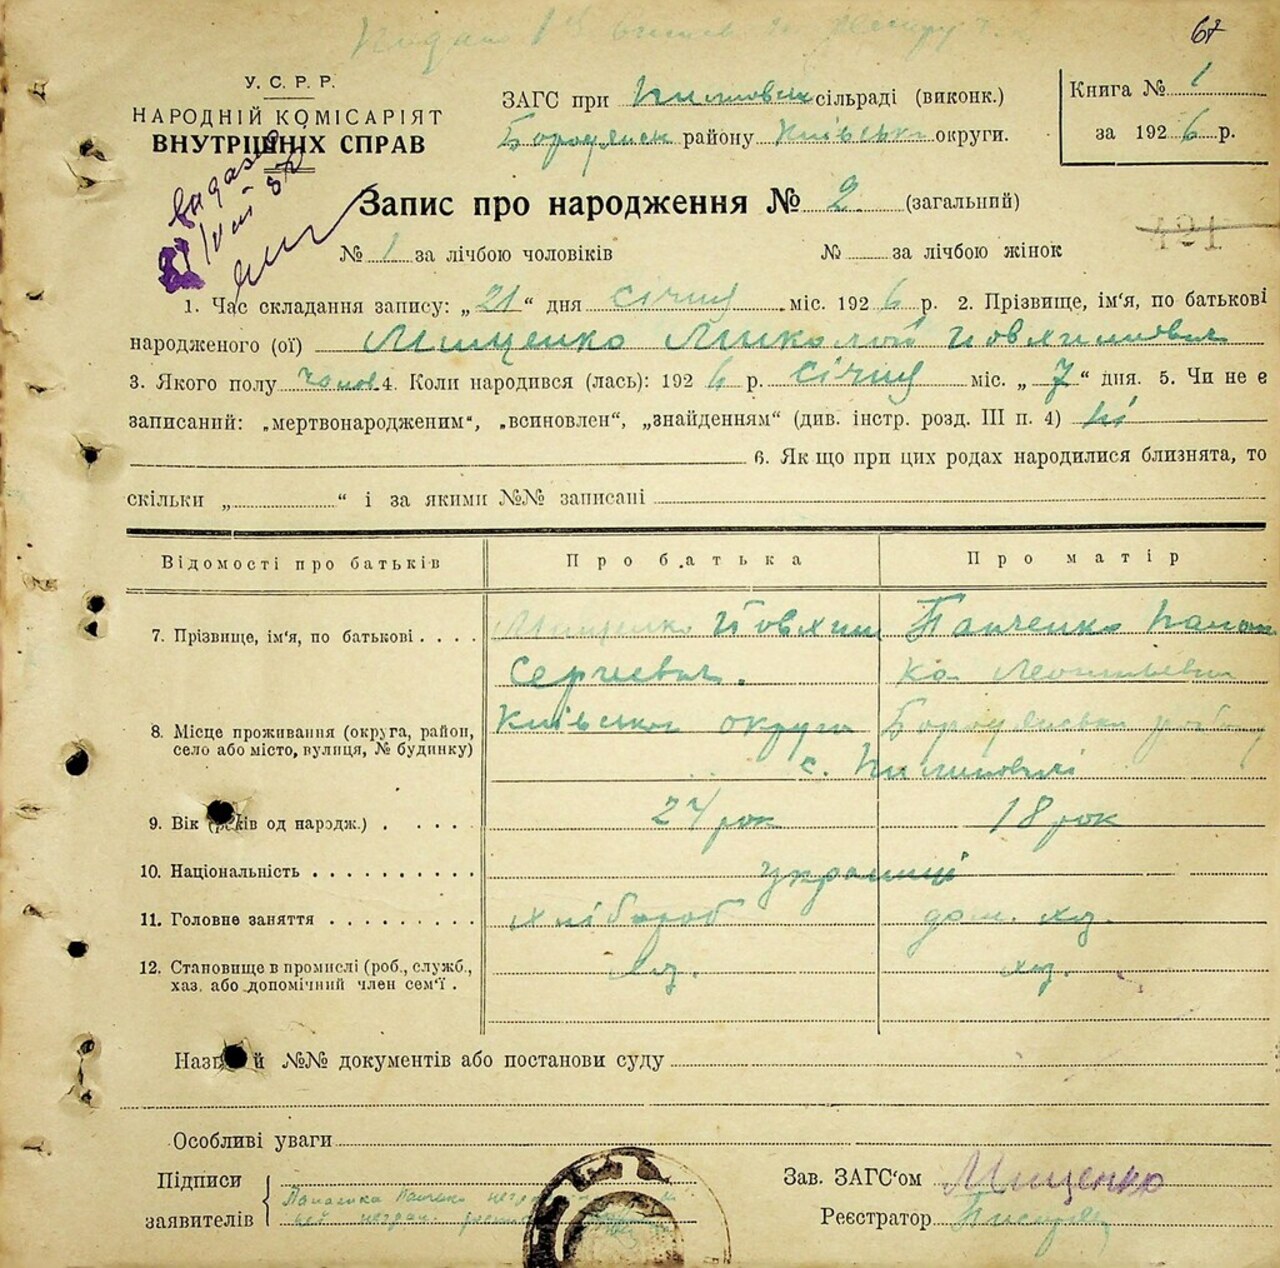 67
У. С. Р. Р.
НАРОДНІЙ КОМІСАРІЯТ
ВНУТРІШНІХ СПРАВ
ЗАГС при сільраді (виконк.)
Бородянск району Київськ округи.
Книга № 1
за 1926 р.
Запис про народження № 2 (загальний)
№ 1 за лічбою чоловіків № за лічбою жінок
1. Час складання запису: „21“ дня січня міс. 1926 р. 2. Прізвище, ім'я, по батькові
народженого (ої) Мищенко Миколай Йовхимович
3. Якого полу чолов. 4. Коли народився (лась): 1926 р. січня міс. „7“ дня. 5. Чи не є
записаний: „мертвонародженим“, „всиновлен“, „знайденням“ (див. інстр. розд. III п. 4) ні
6. Як що при цих родах народилися близнята, то
скільки „ “ і за якими №№ записані
Відомості про батьків Про батька Про матір
7. Прізвище, ім'я, по батькові . . . . Мищенко Йовхим Панченко
Сергиевич.
8. Місце проживання (округа, район,
село або місто, вулиця, № будинку)
Київської округи Бородянсько
с.
9. Вік (років од народж.) . . . . 24 рок 18 рок
10. Національність . . . . . . . . . . українці
11. Головне заняття . . . . . . . . . хлібороб дом. хаз.
12. Становище в промислі (роб., служб.,
хаз. або допомічний член сем'ї .
хаз. хаз.
Назва й №№ документів або постанови суду
Особливі уваги
Підписи
заявителів
Зав. ЗАГС'ом Мищенко
Реєстратор